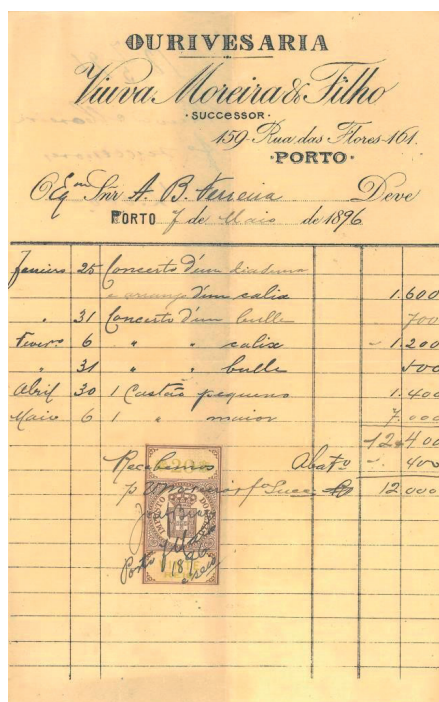 OURIVESARIA
Viuva Moreira & Filho
·SUCCESSOR·
159-Rua das Flores-161.
·PORTO·
O Exmo Snr A. B. Ferreira Deve
PORTO 7 de Maio de 1896
Janeiro 25 Concerto d'um diadema
e arranjo d'um calix 1.600
" 31 Concerto d'um bulle 700
Feverº 6 " " calix 1.200
" 31 " " bulle 500
Abril 30 1 Castão pequeno 1.400
Maio 6 1 " maior 7.000
12.400
Recebemos Abatº 400
p V Moreira f Succ. 12.000
IMPOSTO DO
Porto 7 Maio
1896